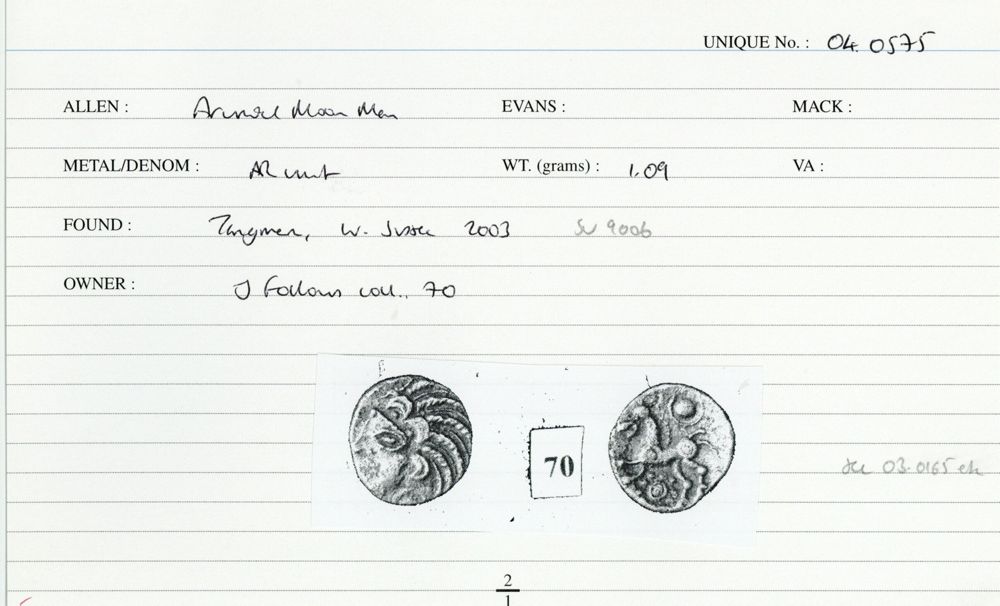 UNIQUE No. : 04. 0575
ALLEN : Arundel Moon Man EVANS : MACK :
METAL/DENOM : AR unit WT. (grams) : 1.09 VA :
FOUND : Tangmere, W. Sussex 2003 SU 9006
OWNER : J Follows coll.. 70
70
see 03.0165 etc
2
1